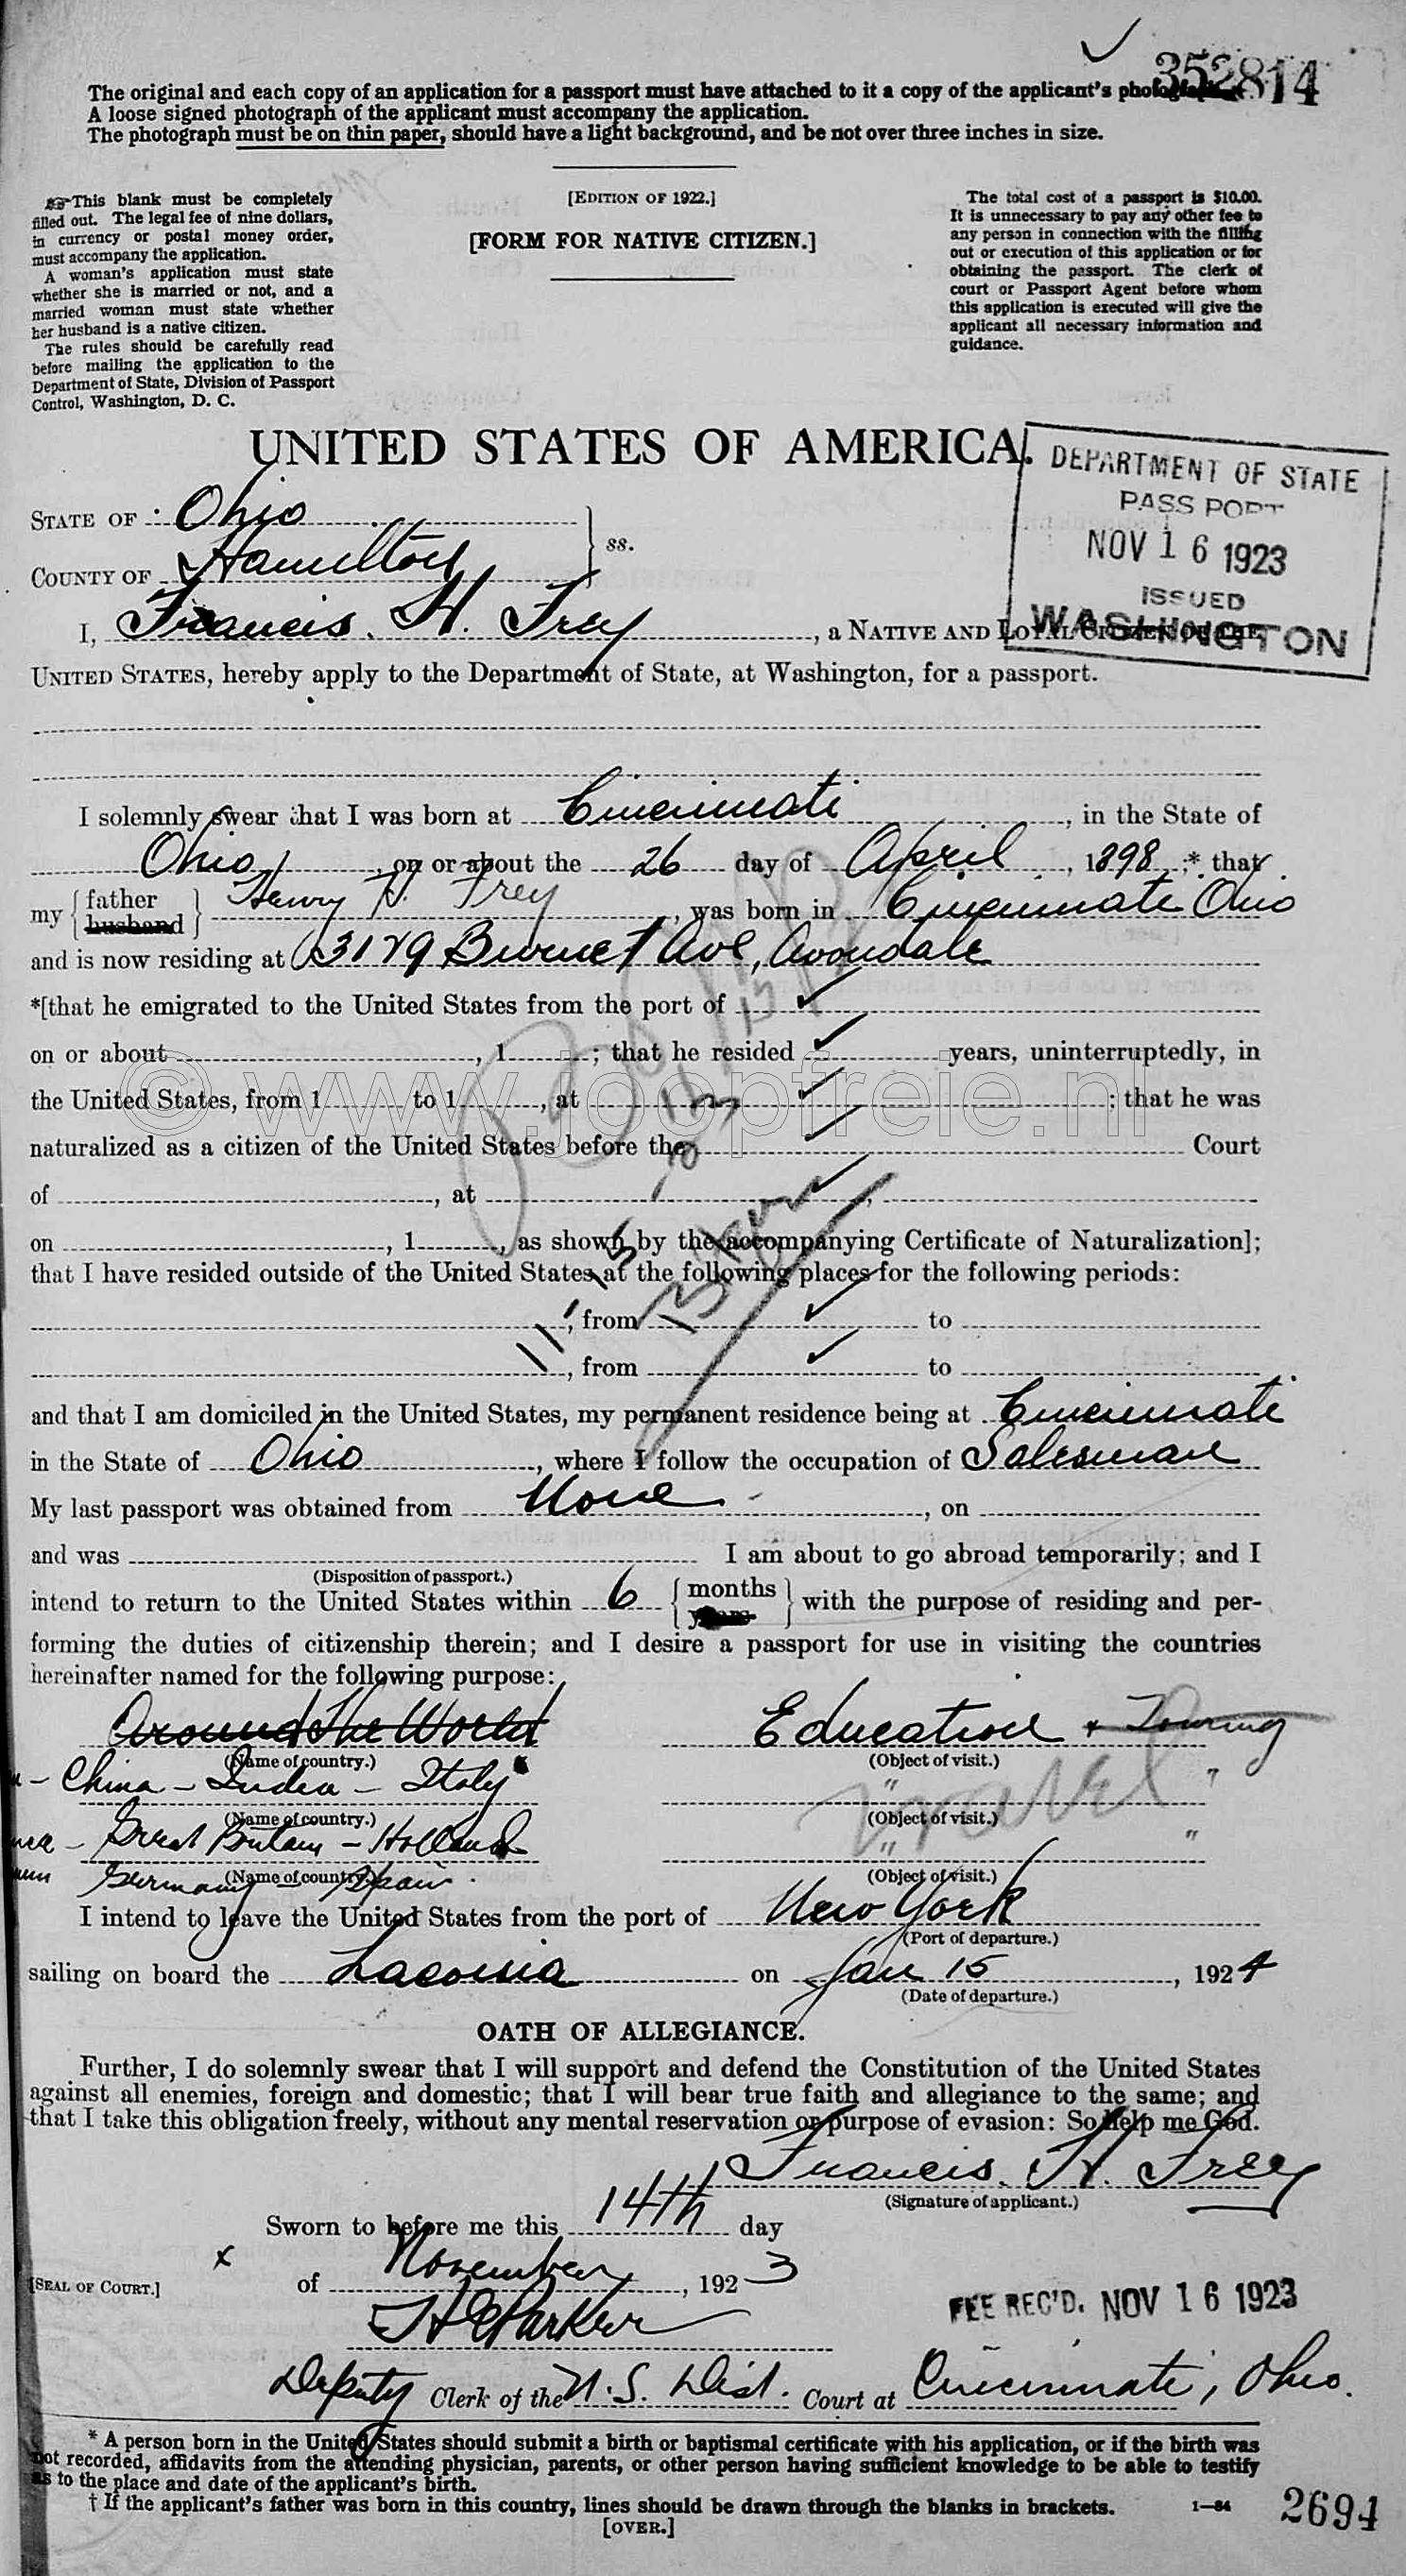 352814
The original and each copy of an application for a passport must have attached to it a copy of the applicant's
A loose signed photograph of the applicant must accompany the application.
The photograph must be on thin paper, should have a light background, and be not over three inches in size.
This blank must be completely
filled out. The legal fee of nine dollars,
in currency or postal money order,
must accompany the application.
A woman's application must state
whether she is married or not, and a
married woman must state whether
her husband is a native citizen.
The rules should be carefully read
before mailing the application to the
Department of State, Division of Passport
Control, Washington, D. C.
[EDITION OF 1922.]
[FORM FOR NATIVE CITIZEN.]
The total cost of a passport is $10.00.
It is unnecessary to pay any other fee to
any person in connection with the filling
out or execution of this application or for
obtaining the passport. The clerk of
court or Passport Agent before whom
this application is executed will give the
applicant all necessary information and
guidance.
UNITED STATES OF AMERICA.
DEPARTMENT OF STATE
PASSPORT
NOV 16 1923
ISSUED
WASHINGTON
STATE OF Ohio
COUNTY OF Hamilton ss.
I, Francis. H. Frey, a NATIVE AND LOYAL CITIZEN OF THE
UNITED STATES, hereby apply to the Department of State, at Washington, for a passport.
I solemnly swear that I was born at Cincinnati, in the State of
Ohio, on or about the 26 day of April, 1898;* that
my {father husband} Henry H. Frey, was born in Cincinnati Ohio
and is now residing at 3179 Burnet Ave, Avondale
*[that he emigrated to the United States from the port of
on or about , 1 ; that he resided years, uninterruptedly, in
the United States, from 1 to 1 , at ; that he was
naturalized as a citizen of the United States before the Court
of , at ,
on , 1 , as shown by the accompanying Certificate of Naturalization];
that I have resided outside of the United States at the following places for the following periods:
, from to
, from to
and that I am domiciled in the United States, my permanent residence being at Cincinnati
in the State of Ohio, where I follow the occupation of Salesman
My last passport was obtained from None, on
and was I am about to go abroad temporarily; and I
(Disposition of passport.)
intend to return to the United States within 6 {months years} with the purpose of residing and per-
forming the duties of citizenship therein; and I desire a passport for use in visiting the countries
hereinafter named for the following purpose:
Around the World Education + Touring
(Name of country.) (Object of visit.)
- China - India - Italy " "
Travel
(Name of country.) (Object of visit.)
- Great Britain - Holland " "
(Name of country.) (Object of visit.)
Germany - Spain
I intend to leave the United States from the port of New York
(Port of departure.)
sailing on board the Laconia on Jan 15, 1924
(Date of departure.)
OATH OF ALLEGIANCE.
Further, I do solemnly swear that I will support and defend the Constitution of the United States
against all enemies, foreign and domestic; that I will bear true faith and allegiance to the same; and
that I take this obligation freely, without any mental reservation or purpose of evasion: So help me God.
Francis. H. Frey
(Signature of applicant.)
Sworn to before me this 14th day
[SEAL OF COURT.] of November, 1923
H E Parker
FEE REC'D. NOV 16 1923
Deputy Clerk of the U. S. Dist. Court at Cincinnati, Ohio.
* A person born in the United States should submit a birth or baptismal certificate with his application, or if the birth was
not recorded, affidavits from the attending physician, parents, or other person having sufficient knowledge to be able to testify
as to the place and date of the applicant's birth.
† If the applicant's father was born in this country, lines should be drawn through the blanks in brackets. 1—84
[OVER.]
2694
© www.joopfreie.nl